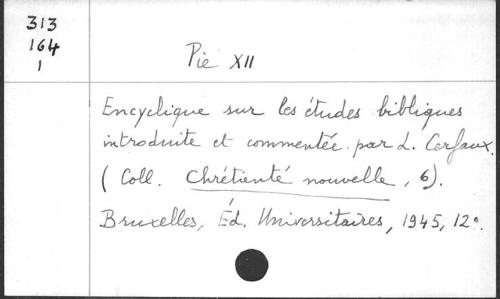 313
164
1
Pie XII
Encyclique sur les études bibliques
introduite et commentée par L. Cerfaux.
(Coll. Chrétienté nouvelle, 6).
Bruxelles, Éd. Universitaires, 1945, 12°.